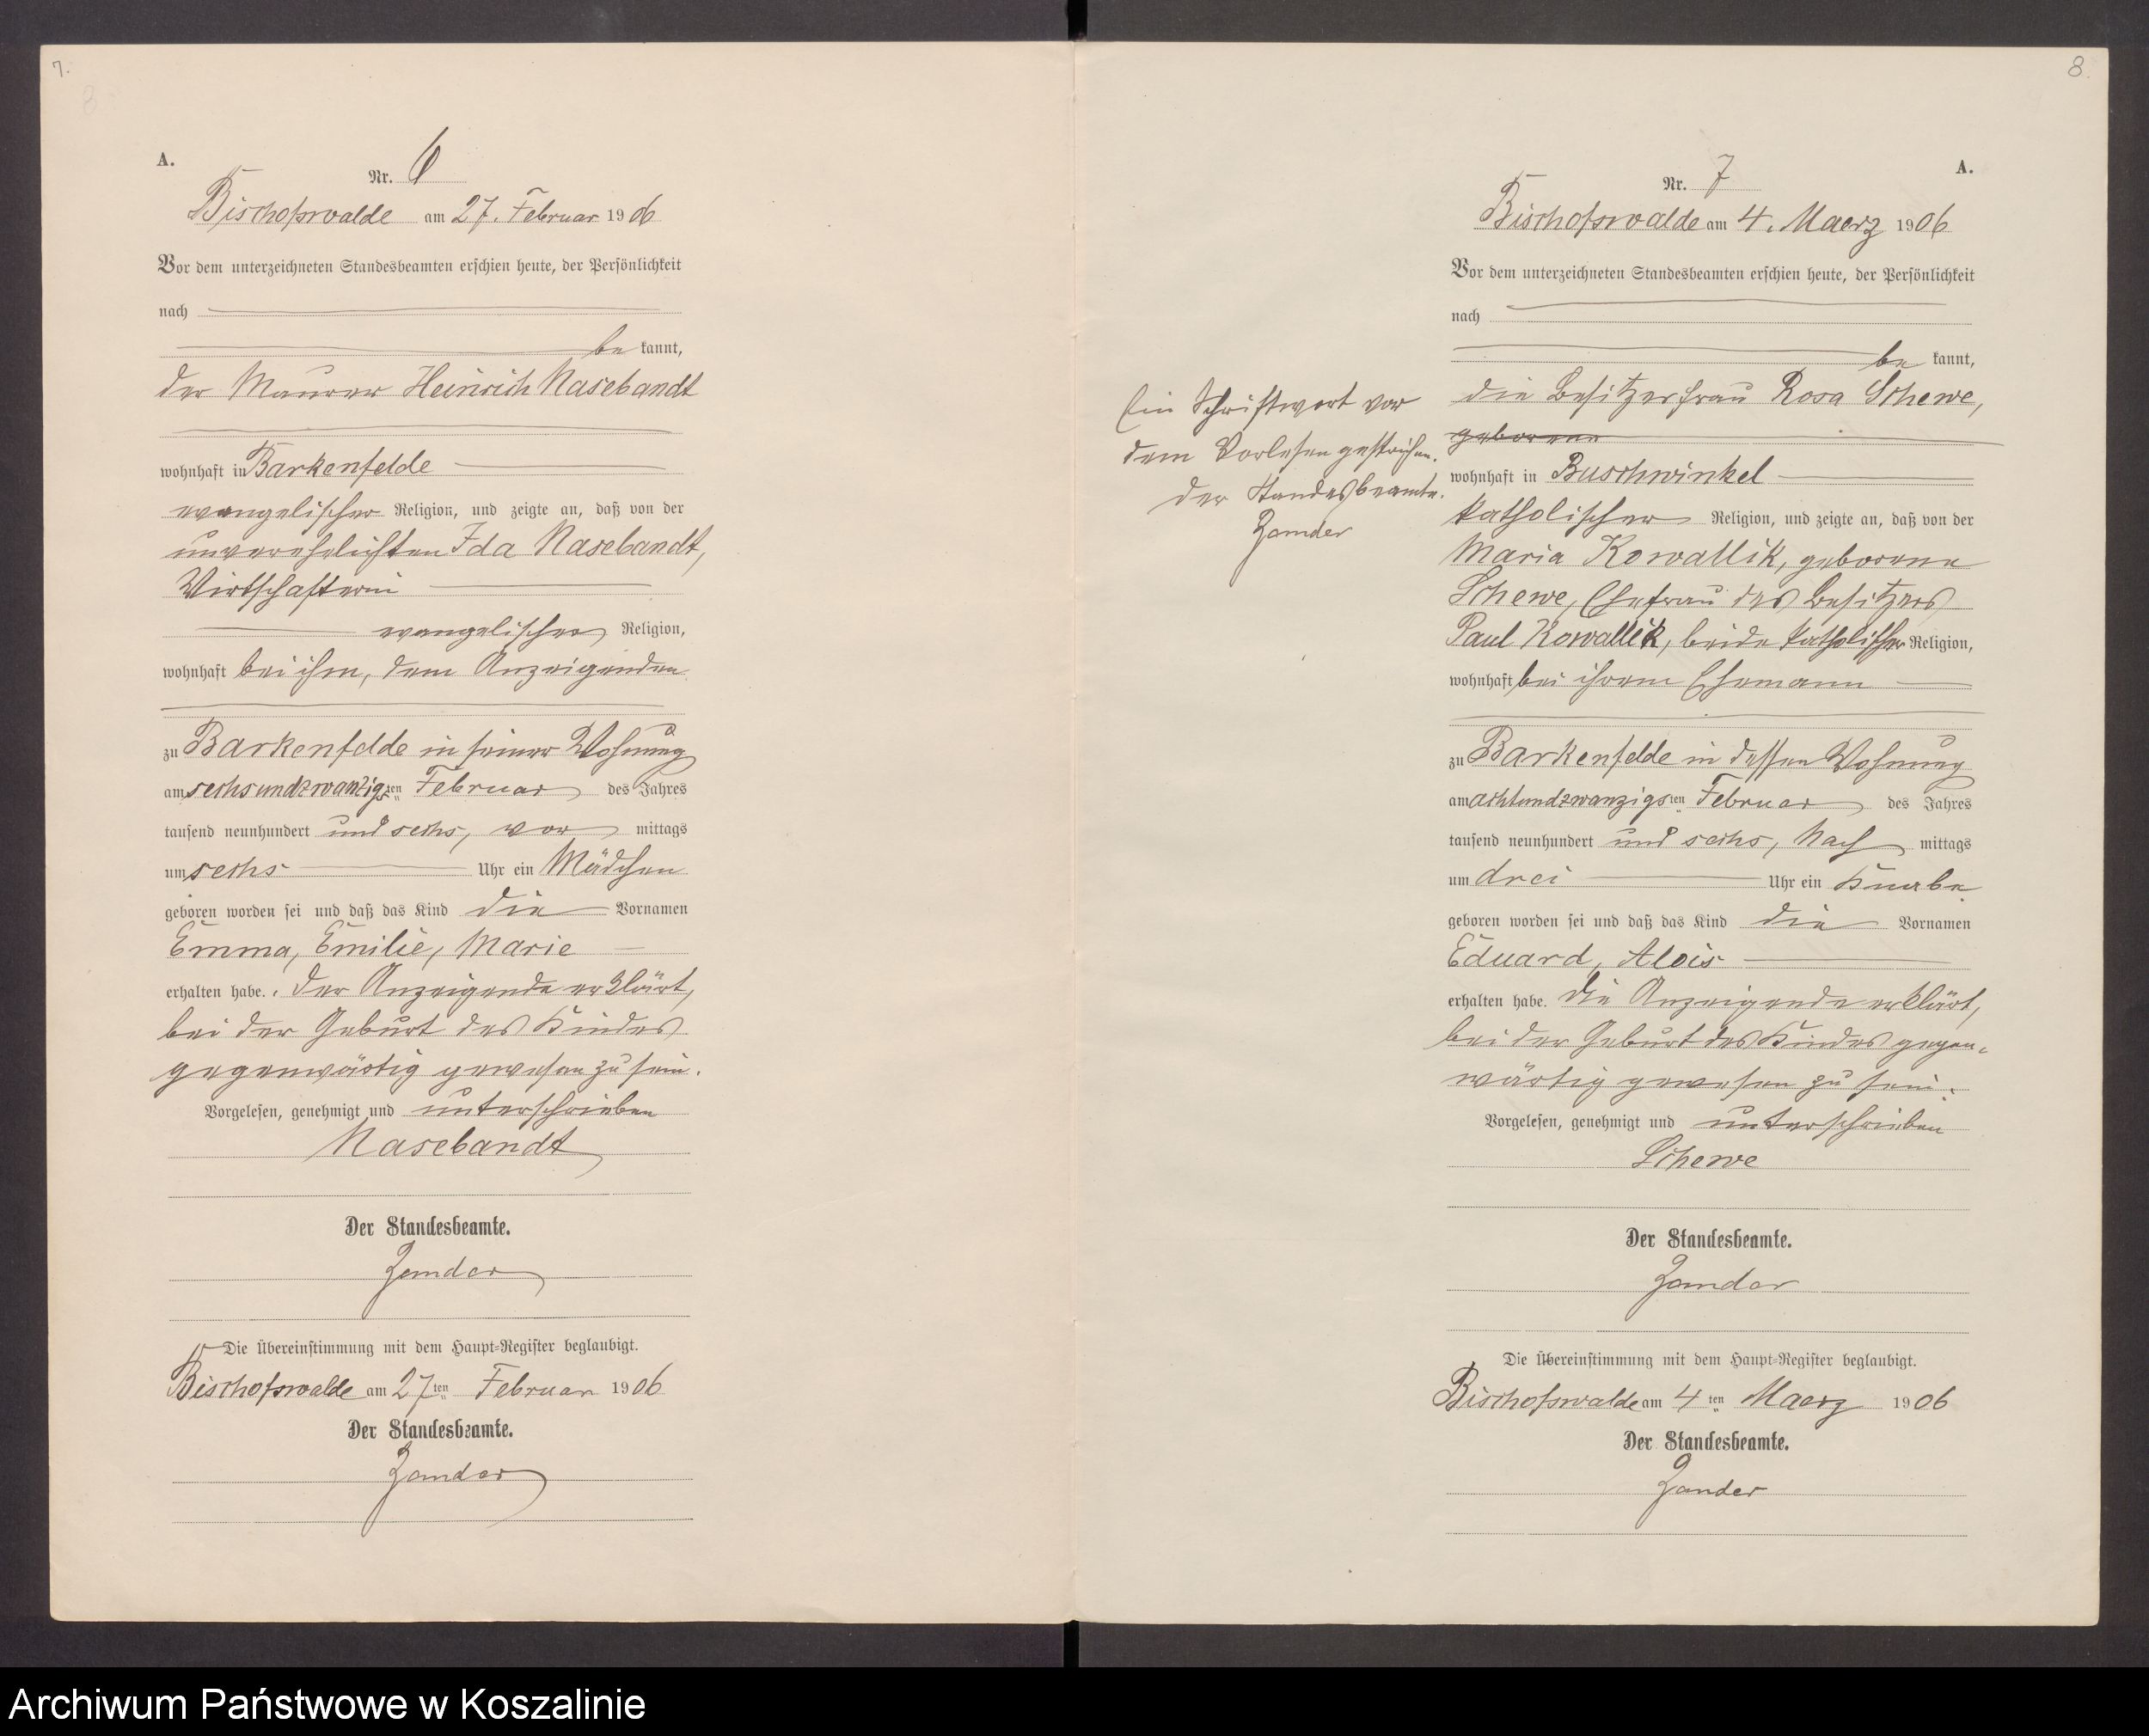 7.
8
A.
Nr. 6
Bischofswalde am 27. Februar 1906
Vor dem unterzeichneten Standesbeamten erschien heute, der Persönlichkeit
nach
be kannt,
der Maurer Heinrich Nasebandt
wohnhaft in Barkenfelde
evangelischer Religion, und zeigte an, daß von der
unverehelichten Ida Nasebandt,
Wirtschafterin
evangelischer Religion,
wohnhaft bei ihm, dem Anzeigenden
zu Barkenfelde in seiner Wohnung
am sechsundzwanzigsten Februar des Jahres
tausend neunhundert und sechs, vor mittags
um sechs Uhr ein Mädchen
geboren worden sei und daß das Kind die Vornamen
Emma, Emilie, Marie
erhalten habe. Der Anzeigende erklärt,
bei der Geburt des Kindes
gegenwärtig gewesen zu sein.
Vorgelesen, genehmigt und unterschrieben
Nasebandt
Der Standesbeamte.
Zander
Die Übereinstimmung mit dem Haupt-Register beglaubigt.
Bischofswalde am 27ten Februar 1906
Der Standesbeamte.
Zander
8.
A.
Nr. 7
Bischofswalde am 4. Maerz 1906
Vor dem unterzeichneten Standesbeamten erschien heute, der Persönlichkeit
nach
be kannt,
die Besitzerfrau Rosa Schewe,
geborene
Ein Schriftwort vor
dem Vorlesen gestrichen.
Der Standesbeamte.
Zander
wohnhaft in Buschwinkel
katholischer Religion, und zeigte an, daß von der
Maria Kowallik, geborene
Schewe, Ehefrau des Besitzers
Paul Kowallik, beide katholischer Religion,
wohnhaft bei ihrem Ehemann
zu Barkenfelde in dessen Wohnung
am achtundzwanzigsten Februar des Jahres
tausend neunhundert und sechs, Nach mittags
um drei Uhr ein Knabe
geboren worden sei und daß das Kind die Vornamen
Eduard, Alois
erhalten habe. Die Anzeigende erklärt,
bei der Geburt des Kindes gegen-
wärtig gewesen zu sein.
Vorgelesen, genehmigt und unterschrieben
Schewe
Der Standesbeamte.
Zander
Die Übereinstimmung mit dem Haupt-Register beglaubigt.
Bischofswalde am 4ten Maerz 1906
Der Standesbeamte.
Zander
Archiwum Państwowe w Koszalinie